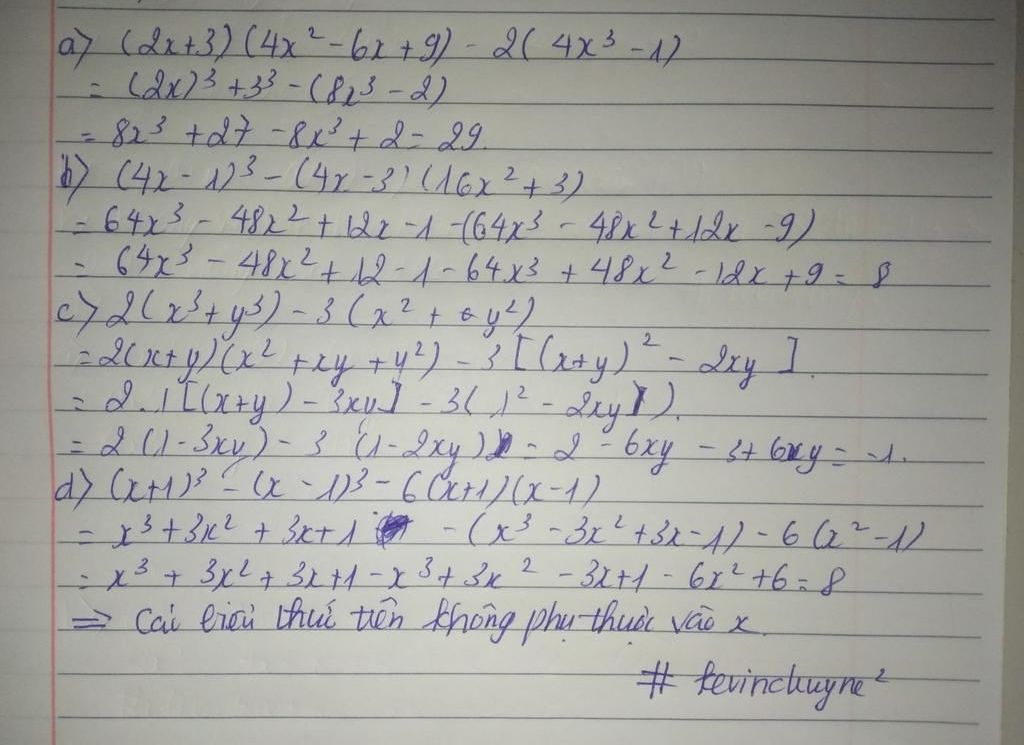 a) (2x+3)(4x² - 6x + 9) - 2(4x³ - 1)
= (2x)³ + 3³ - (8x³ - 2)
= 8x³ + 27 - 8x³ + 2 = 29.
b) (4x - 1)³ - (4x - 3)(16x² + 3)
= 64x³ - 48x² + 12x - 1 - (64x³ - 48x² + 12x - 9)
= 64x³ - 48x² + 12 - 1 - 64x³ + 48x² - 12x + 9 = 8
c) 2(x³ + y³) - 3(x² + y²)
= 2(x+y)(x² + xy + y²) - 3[(x+y)² - 2xy].
= 2.1[(x+y) - 3xy] - 3(1² - 2xy).
= 2(1 - 3xy) - 3(1 - 2xy) = 2 - 6xy - 3 + 6xy = -1.
d) (x+1)³ - (x - 1)³ - 6(x+1)(x - 1)
= x³ + 3x² + 3x + 1 - (x³ - 3x² + 3x - 1) - 6(x² - 1)
= x³ + 3x² + 3x + 1 - x³ + 3x² - 3x + 1 - 6x² + 6 = 8
=> Cái biểu thứ trên không phụ thuộc vào x.
# kevinchuyne²